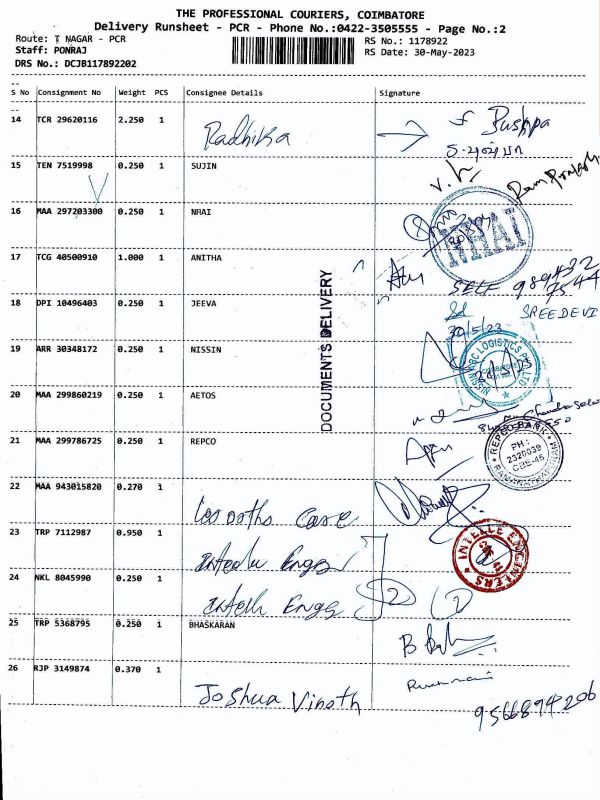 THE PROFESSIONAL COURIERS, COIMBATORE
Delivery Runsheet - PCR - Phone No.:0422-3505555 - Page No.:2
Route: T NAGAR - PCR
RS No.: 1178922
Staff: PONRAJ
RS Date: 30-May-2023
DRS No.: DCJB117892202
S No Consignment No Weight PCS Consignee Details Signature
14 TCR 29620116 2.250 1 Radhika Pushpa
15 TEN 7519998 0.250 1 SUJIN
16 MAA 297203300 0.250 1 NHAI
NHAI
17 TCG 40500910 1.000 1 ANITHA
SELF
18 DPI 10496403 0.250 1 JEEVA
SREEDEVI
30/5/23
DOCUMENTS DELIVERY
19 ARR 30348172 0.250 1 NISSIN
20 MAA 299860219 0.250 1 AETOS
21 MAA 299786725 0.250 1 REPCO
REPCO BANK
PH:
2320039
CBE-45
22 MAA 943015820 0.270 1
23 TRP 7112987 0.950 1
INTELLE ENGINEERS
24 NKL 8045990 0.250 1
25 TRP 5368795 0.250 1 BHASKARAN
26 RJP 3149874 0.370 1 Joshua Vinoth
9566894206